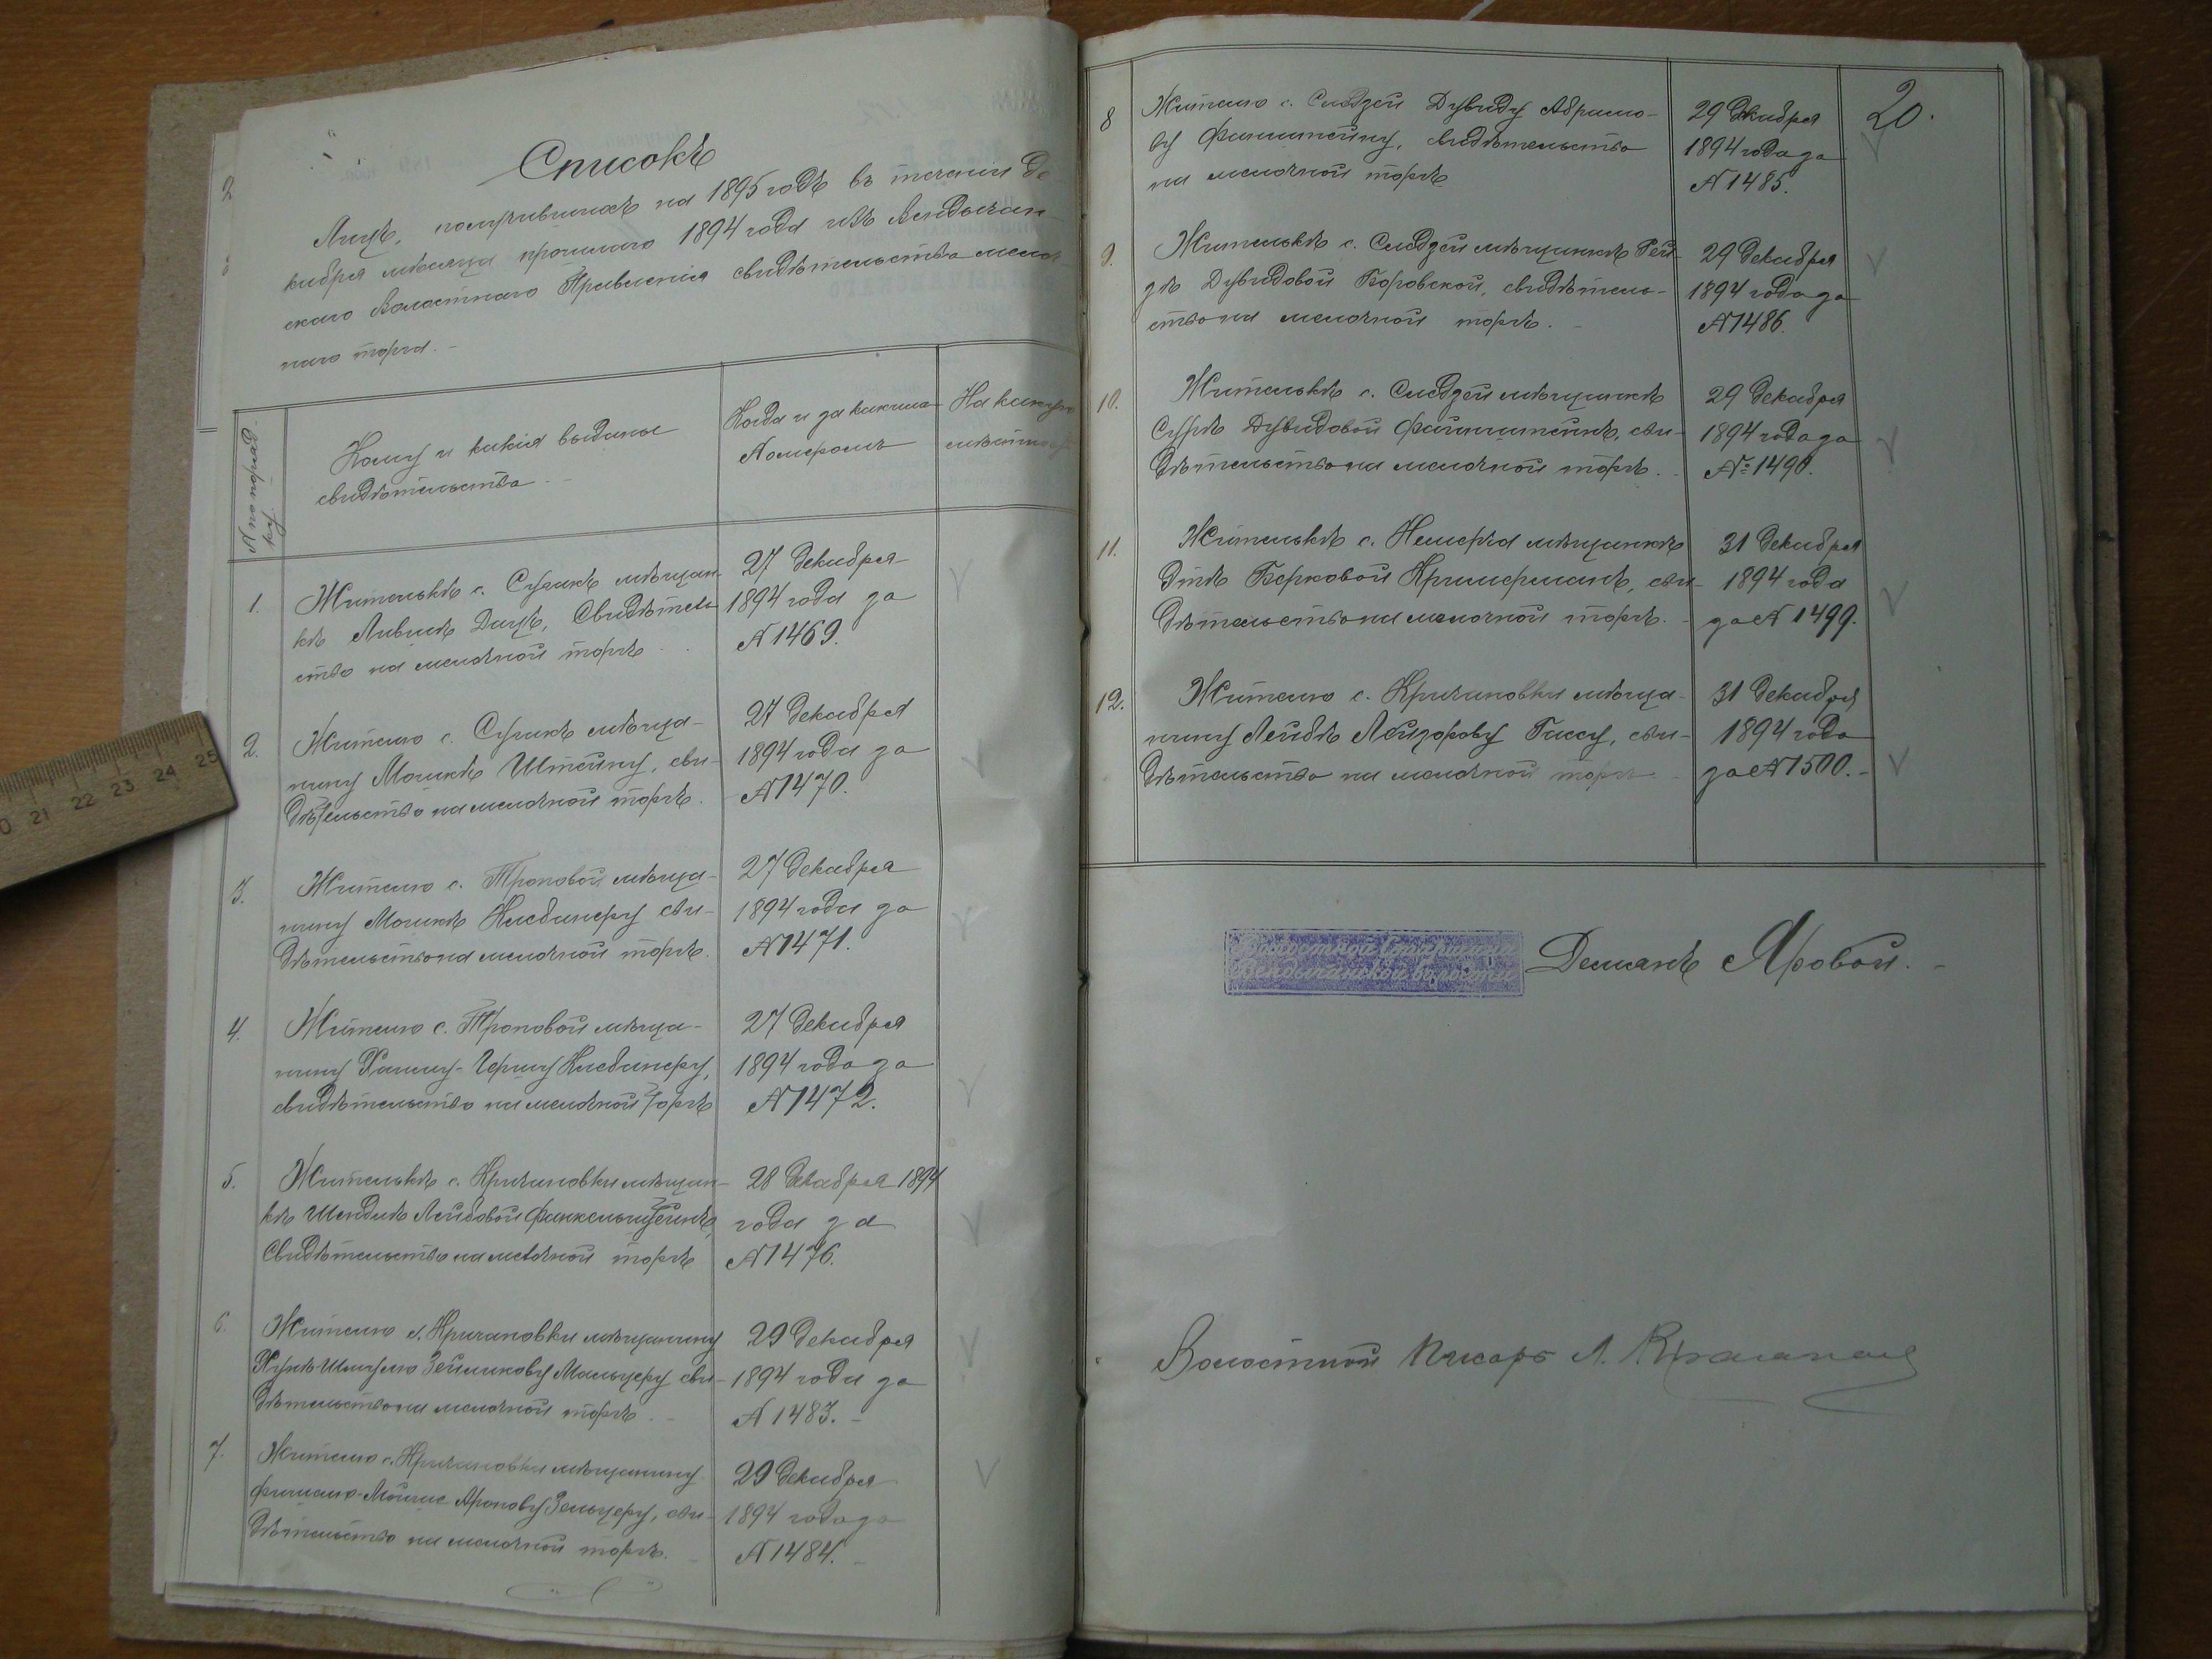 Списокъ
Лицъ, получившихъ на 1895 годъ въ теченіи Де-
кабря мѣсяца прошлаго 1894 года изъ Вендычан-
скаго Волостнаго Правленія свидѣтельства мелоч
наго торга.
№ по поряд-
ку
Кому и какія выданы
свидѣтельства
Когда и за какимъ
Номеромъ
На какую
мѣстность
1. Жителькѣ с. Сугакъ мѣщан-
кѣ Лившѣ Дицъ, Свидѣтель
ство на мелочной торгъ
27 Декабря
1894 года за
№ 1469.
2. Жителю с. Сугакъ мѣща-
нину Мошкѣ Штейну, сви-
дѣтельство на мелочной торгъ.
27 Декабря
1894 года за
№ 1470.
3. Жителю с. Троповой мѣща-
нину Мошкѣ Клебанеру сви-
дѣтельство на мелочной торгъ.
27 Декабря
1894 года за
№ 1471.
4. Жителю с. Троповой мѣща-
нину Гершу Клебанеру,
свидѣтельство на мелочной торгъ
27 Декабря
1894 года за
№ 1472.
5. Жителькѣ с. Кричановки мѣщан-
кѣ Шендлѣ Лейбовой Финкельштейнъ,
Свидѣтельство на мелочной торгъ
28 Декабря 1894
года за
№ 1476.
6. Жителю с. Кричановки мѣщанину
Шмулю Зейликову Мальцеру сви-
дѣтельство на мелочной торгъ
29 Декабря
1894 года за
№ 1483.
7. Жителю с. Кричановки мѣщанину
Аронову Зельцеру, сви-
дѣтельство на мелочной торгъ.
29 Декабря
1894 года за
№ 1484.
20.
8 Жителю с. Слѣдзей Дувиду Абрамо-
ву Файнштейну, свидѣтельство
на мелочной торгъ
29 Декабря
1894 года за
№ 1485.
9. Жителькѣ с. Слѣдзей мѣщанкѣ Рей-
зѣ Дувидовой Боровской, свидѣтель-
ство на мелочной торгъ.
29 Декабря
1894 года за
№ 1486.
10. Жителькѣ с. Слѣдзей мѣщанкѣ
Сурѣ Дувидовой Файнштейнъ, сви-
дѣтельство на мелочной торгъ.
29 Декабря
1894 года за
№ 1490.
11. Жителькѣ с. Немерча мѣщанкѣ
Берковой Криммерманъ, сви-
дѣтельство на мелочной торгъ.
31 Декабря
1894 года
за № 1499.
12. Жителю с. Кричановки мѣща-
нину Лейбѣ Лейзорову Гассу, сви-
дѣтельство на мелочной торгъ
31 Декабря
1894 года
за № 1500.
Волостной Старшина
Вендычанской волости
Демянъ Яровой.
Волостной Писарь Л.
21 22 23 24 25